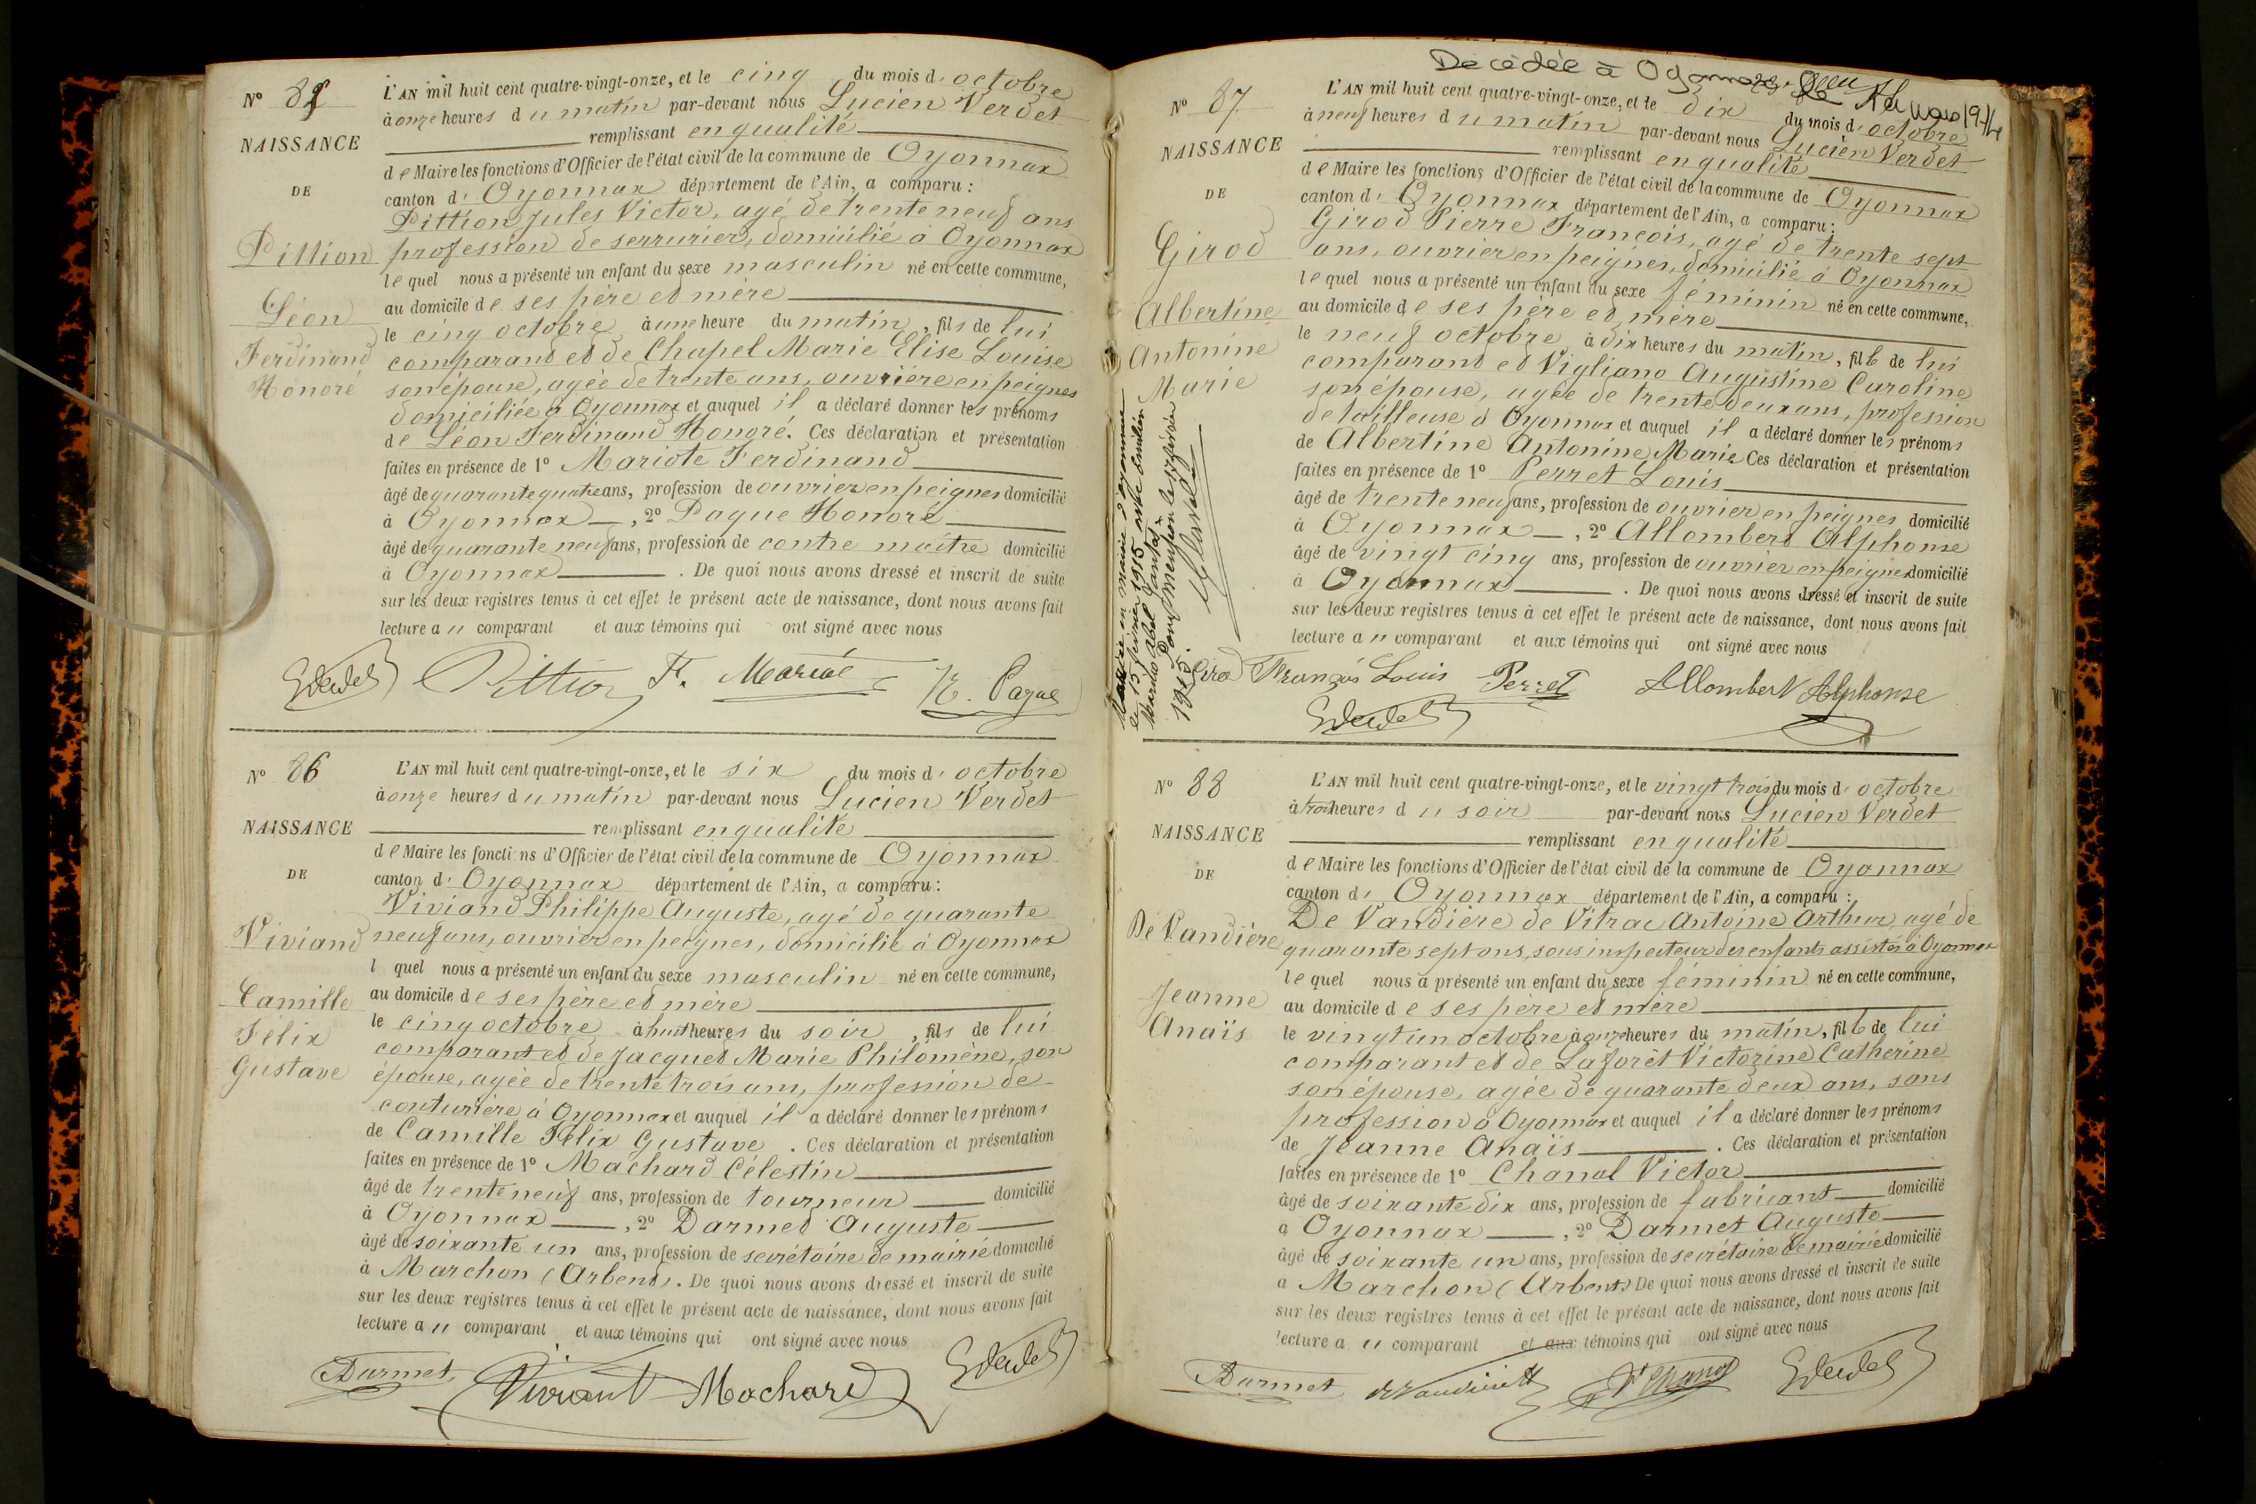 N° 85
NAISSANCE
DE
Pittion
Léon
Ferdinand
Honoré
L'AN mil huit cent quatre-vingt-onze, et le cinq du mois d'octobre
à onze heures du matin par-devant nous Lucien Verdet
remplissant en qualité
de Maire les fonctions d'Officier de l'état civil de la commune de Oyonnax
canton d'Oyonnax département de l'Ain, a comparu :
Pittion Jules Victor, agé de trente neuf ans
profession de serrurier, domicilié à Oyonnax
lequel nous a présenté un enfant du sexe masculin né en cette commune,
au domicile de ses père et mère
le cinq octobre à une heure du matin, fils de lui
comparant et de Chapel Marie Elise Louise
son épouse, agée de trente ans, ouvrière en peignes
domiciliée à Oyonnax et auquel il a déclaré donner les prénoms
de Léon Ferdinand Honoré. Ces déclaration et présentation
faites en présence de 1° Mariote Ferdinand
âgé de quarante quatre ans, profession de ouvrier en peignes domicilié
à Oyonnax, 2° Pague Honoré
âgé de quarante neuf ans, profession de contre maitre domicilié
à Oyonnax. De quoi nous avons dressé et inscrit de suite
sur les deux registres tenus à cet effet le présent acte de naissance, dont nous avons fait
lecture au comparant et aux témoins qui ont signé avec nous
Pittion F. H. Pague
N° 86
NAISSANCE
DE
Viviand
Camille
Félix
Gustave
L'AN mil huit cent quatre-vingt-onze, et le six du mois d'octobre
à onze heures du matin par-devant nous Lucien Verdet
remplissant en qualité
de Maire les fonctions d'Officier de l'état civil de la commune de Oyonnax
canton d'Oyonnax département de l'Ain, a comparu :
Viviand Philippe Auguste, agé de quarante
neuf ans, ouvrier en peignes, domicilié à Oyonnax
l quel nous a présenté un enfant du sexe masculin né en cette commune,
au domicile de ses père et mère
le cinq octobre à huit heures du soir, fils de lui
comparant et de Jacquet Marie Philomène, son
épouse, agée de trente trois ans, profession de
couturière à Oyonnax et auquel il a déclaré donner les prénoms
de Camille Félix Gustave. Ces déclaration et présentation
faites en présence de 1° Machard Célestin
âgé de trente neuf ans, profession de tourneur domicilié
à Oyonnax, 2° Darmet Auguste
âgé de soixante un ans, profession de secrétaire de mairie domicilié
à Marchon (Arbent). De quoi nous avons dressé et inscrit de suite
sur les deux registres tenus à cet effet le présent acte de naissance, dont nous avons fait
lecture au comparant et aux témoins qui ont signé avec nous
Darmet Viviant Machard
Décédée à Oyonnax mars 1974
N° 87
NAISSANCE
DE
Girod
Albertine
Antonine
Marie
Mariée en mairie d'Oyonnax
le 15 1915 avec Emilien
Marius Abel
Pour mention le
1915.
L'AN mil huit cent quatre-vingt-onze, et le dix du mois d'octobre
à neuf heures du matin par-devant nous Lucien Verdet
remplissant en qualité
de Maire les fonctions d'Officier de l'état civil de la commune de Oyonnax
canton d'Oyonnax département de l'Ain, a comparu :
Girod Pierre François, agé de trente sept
ans, ouvrier en peignes, domicilié à Oyonnax
lequel nous a présenté un enfant du sexe féminin né en cette commune,
au domicile de ses père et mère
le neuf octobre à dix heures du matin, fille de lui
comparant et Vigliano Augustine Caroline
son épouse, agée de trente deux ans, profession
de tailleuse à Oyonnax et auquel il a déclaré donner les prénoms
de Albertine Antonine Marie Ces déclaration et présentation
faites en présence de 1° Perret Louis
âgé de trente neuf ans, profession de ouvrier en peignes domicilié
à Oyonnax, 2° Allombert Alphonse
âgé de vingt cinq ans, profession de ouvrier en peignes domicilié
à Oyonnax. De quoi nous avons dressé et inscrit de suite
sur les deux registres tenus à cet effet le présent acte de naissance, dont nous avons fait
lecture au comparant et aux témoins qui ont signé avec nous
Girod François Louis Perret Allombert Alphonse
N° 88
NAISSANCE
DE
De Vandière
Jeanne
Anaïs
L'AN mil huit cent quatre-vingt-onze, et le vingt trois du mois d'octobre
à trois heures du soir par-devant nous Lucien Verdet
remplissant en qualité
de Maire les fonctions d'Officier de l'état civil de la commune de Oyonnax
canton d'Oyonnax département de l'Ain, a comparu :
De Vandière de Vitrac Antoine Arthur, agé de
quarante sept ans, sous inspecteur des enfants assistés à Oyonnax
lequel nous a présenté un enfant du sexe féminin né en cette commune,
au domicile de ses père et mère
le vingt un octobre à onze heures du matin, fille de lui
comparant et de Laforêt Victorine Catherine
son épouse, agée de quarante deux ans, sans
profession à Oyonnax et auquel il a déclaré donner les prénoms
de Jeanne Anaïs. Ces déclaration et présentation
faites en présence de 1° Chanal Victor
âgé de soixante dix ans, profession de fabricant domicilié
à Oyonnax, 2° Darmet Auguste
âgé de soixante un ans, profession de secrétaire de mairie domicilié
à Marchon (Arbent) De quoi nous avons dressé et inscrit de suite
sur les deux registres tenus à cet effet le présent acte de naissance, dont nous avons fait
lecture au comparant et aux témoins qui ont signé avec nous
Darmet